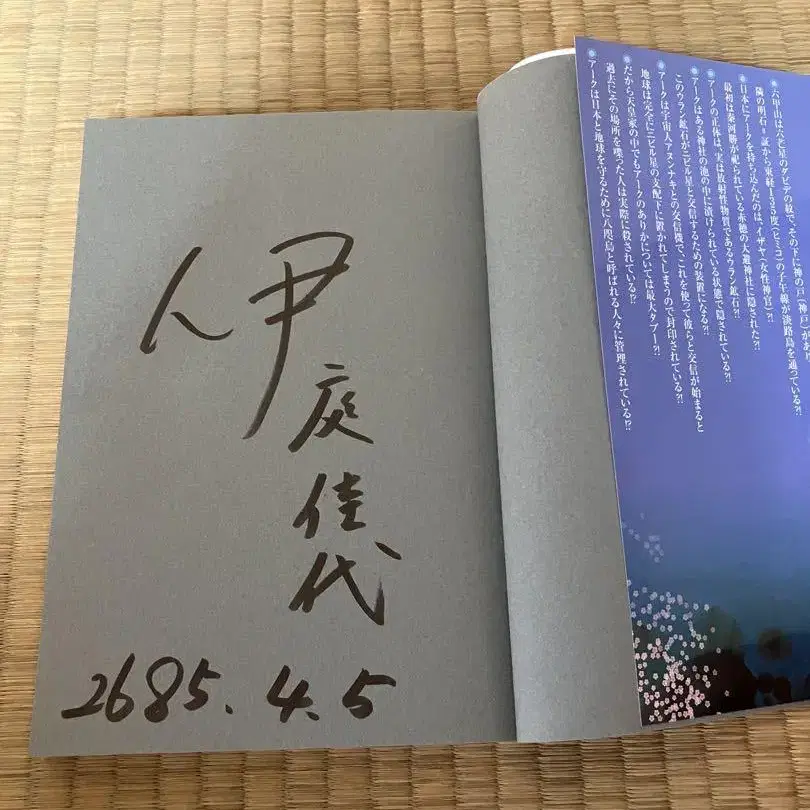 伊庭佳代
2685.4.5
六甲山は六芒星のダビデの紋で、その下に神の戸(神戸)があり
隣の明石=証から東経135度(ヒミコ)の子午線が淡路島を通っている?!
日本にアークを持ち込んだのは、イザヤ(女性神官)?!
最初は秦河勝が祀られている赤穂の大避神社に隠された?!
アークの正体は、実は放射性物質であるウラン鉱石?!
アークはある神社の池の中に漬けられている状態で隠されている?!
このウラン鉱石がニビル星と交信するための装置になる?!
アークは宇宙人アヌンナキとの交信機で、これを使って彼らと交信が始まると
地球は完全にニビル星の支配下に置かれてしまうので封印されている?!
だから天皇家の中でもアークのありかについては最大タブー?!
過去にその場所を喋った人は実際に殺されている!?
アークは日本と地球を守るために八咫烏と呼ばれる人々に管理されている!?